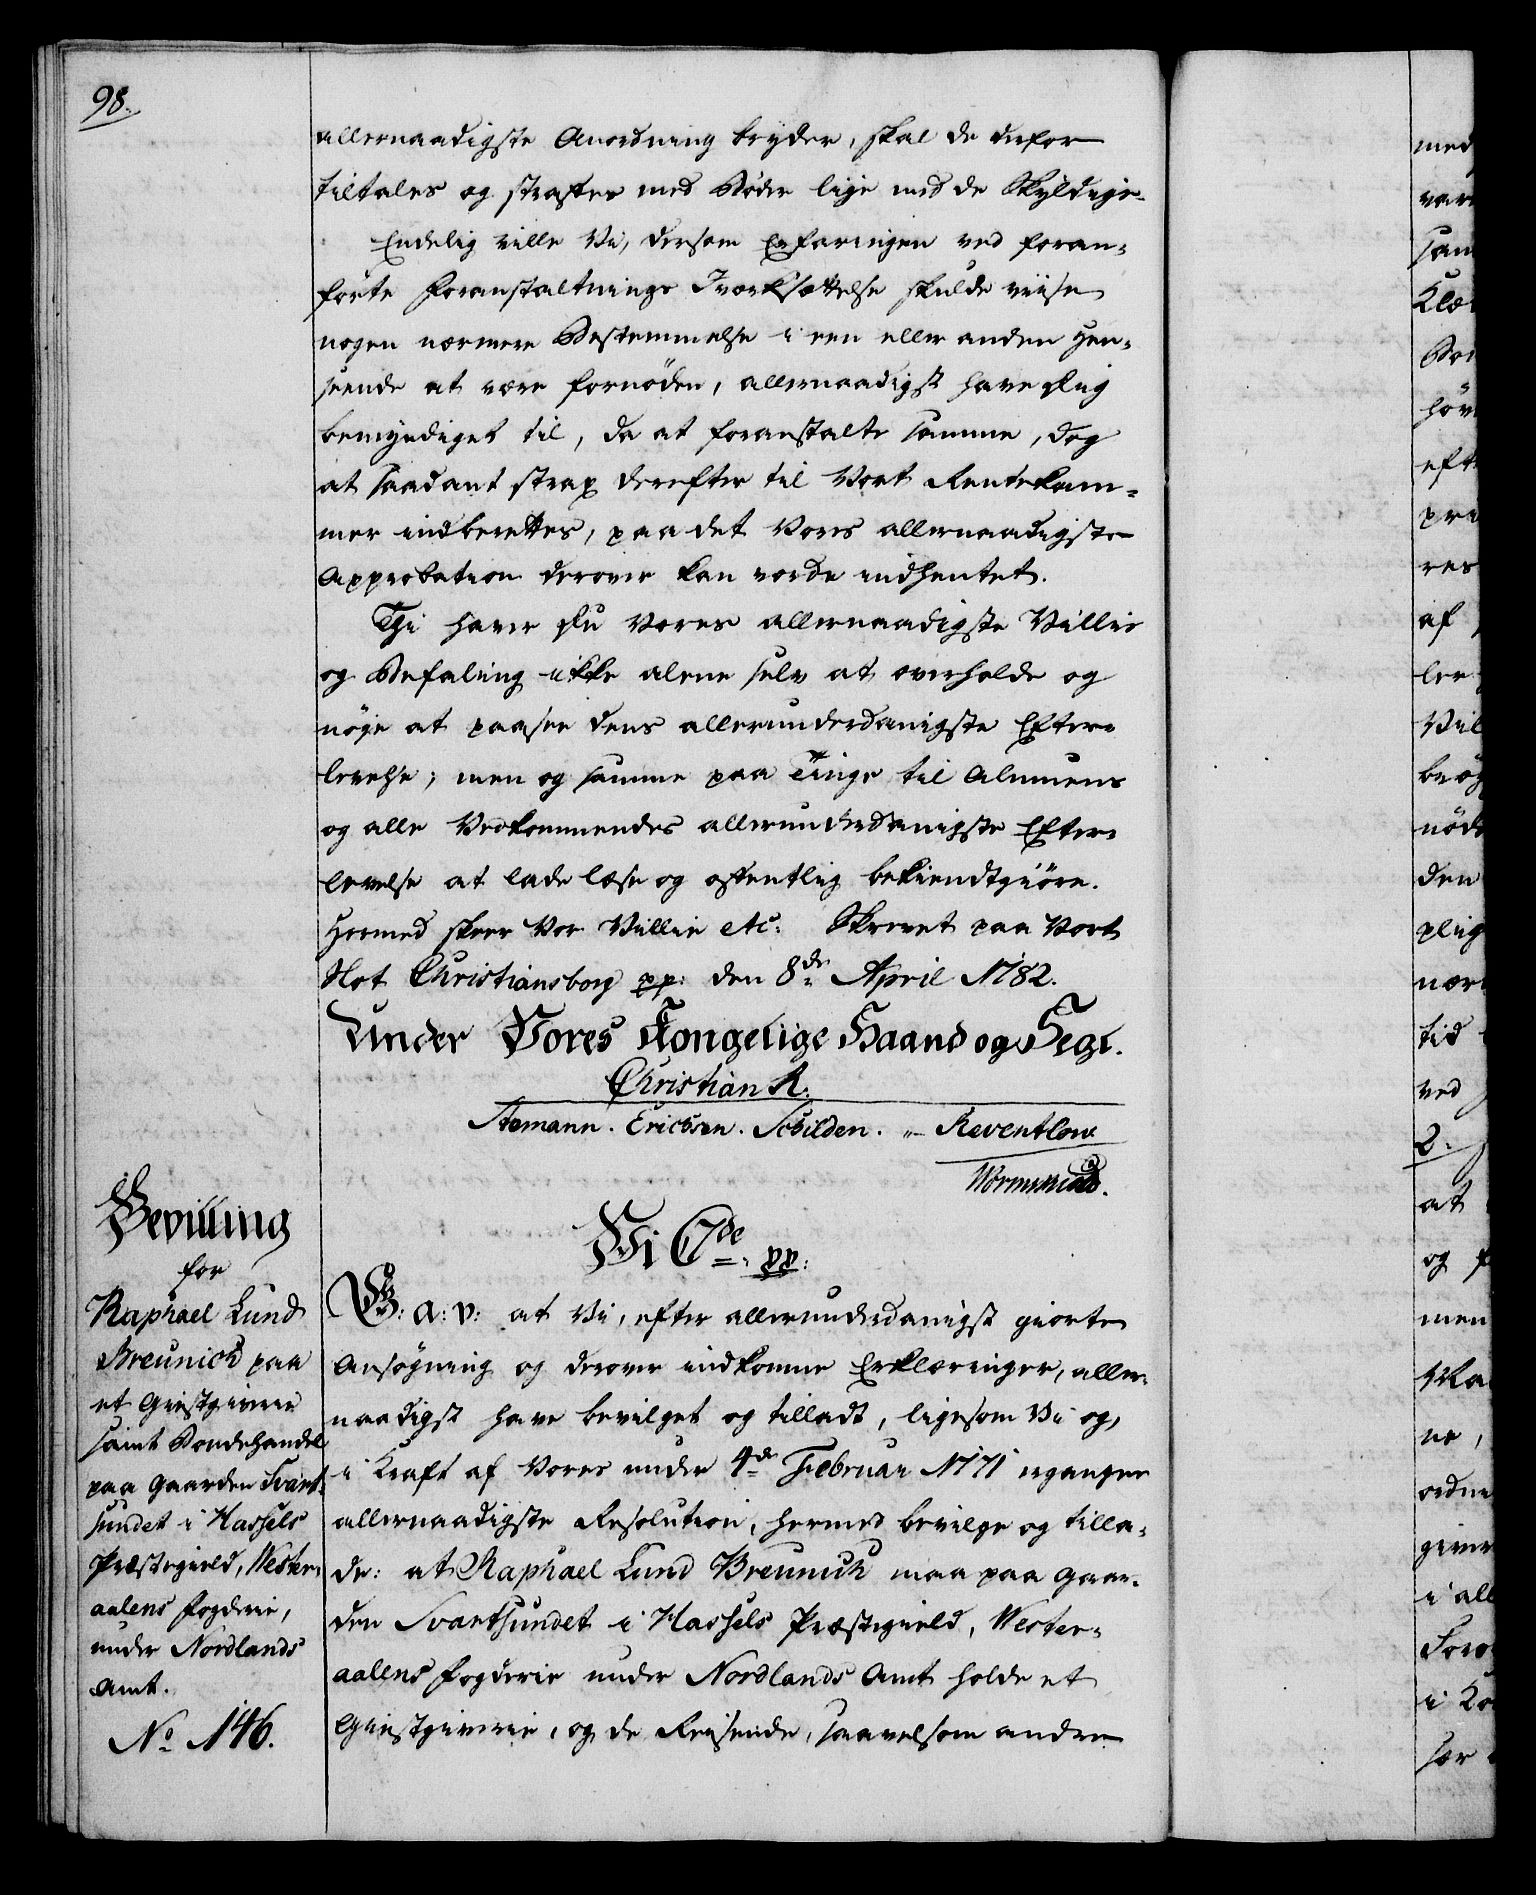 98.
allernaadigste Anordning bryder, skal de derfor
tiltales og straffes med Bøder lige med de Skyldige.
Endelig ville Vi, dersom Erfaringen ved foran-
førte Foranstaltnings Iværksættelse skulde viise
nogen nærmere Bestemmelse i een eller anden Hen-
seende at være fornøden, allernaadigst have Dig
bemyndiget til, da at foranstalte samme, dog
at saadant strax derefter til Vort Rentekam-
mer indberettes, paa det Vores allernaadigste
Approbation derover kan vorde indhentet.
Thi haver Du Vores allernaadigste Villie
og Befaling ikke alene selv at overholde og
nøje at paasee dens allerunderdanigste Efter-
levelse; men og samme paa Tinge til Almuens
og alle Vedkommendes allerunderdanigste Efter-
levelse at lade læse og offentlig bekiendtgiøre.
Hermed skeer Vor Villie etc: Skrevet paa Vort
Slot Christiansborg pp: den 8de April 1782.
Under Vores Kongelige Haand og Segl.
Christian R.
Stemann. Erichsen. Schilden. - Reventlow
Wormskiold.
Bevilling
for
Raphael Lund
Breunich paa
et Giestgiverie
samt Bondehandel
paa Gaarden Svart-
sundet i Hassels
Præstegield, Wester-
aalens Fogderie,
under Nordlands
Amt.
No 146.
Vi C 7de pp:
G: A: V: at Vi, efter allerunderdanigst giorte
Ansøgning og derover indkomne Erklæringer, aller-
naadigst have bevilget og tilladt, ligesom Vi og,
i Kraft af Vores under 4de Februar 1771 ergangne
allernaadigste Resolution, hermed bevilge og tilla-
de: at Raphael Lund Breunich maa paa Gaar-
den Svartsundet i Hassels Præstegield, Wester-
aalens Fogderie under Nordlands Amt holde et
Giestgiverie, og de Reisende, saavelsom andre
med
vare
sam
Klæ
høv
eft
pra
res
af
ler
Vil
nød
den
plig
nær
tid
ved
2.
at
og
men
ne,
ordne
i all
i